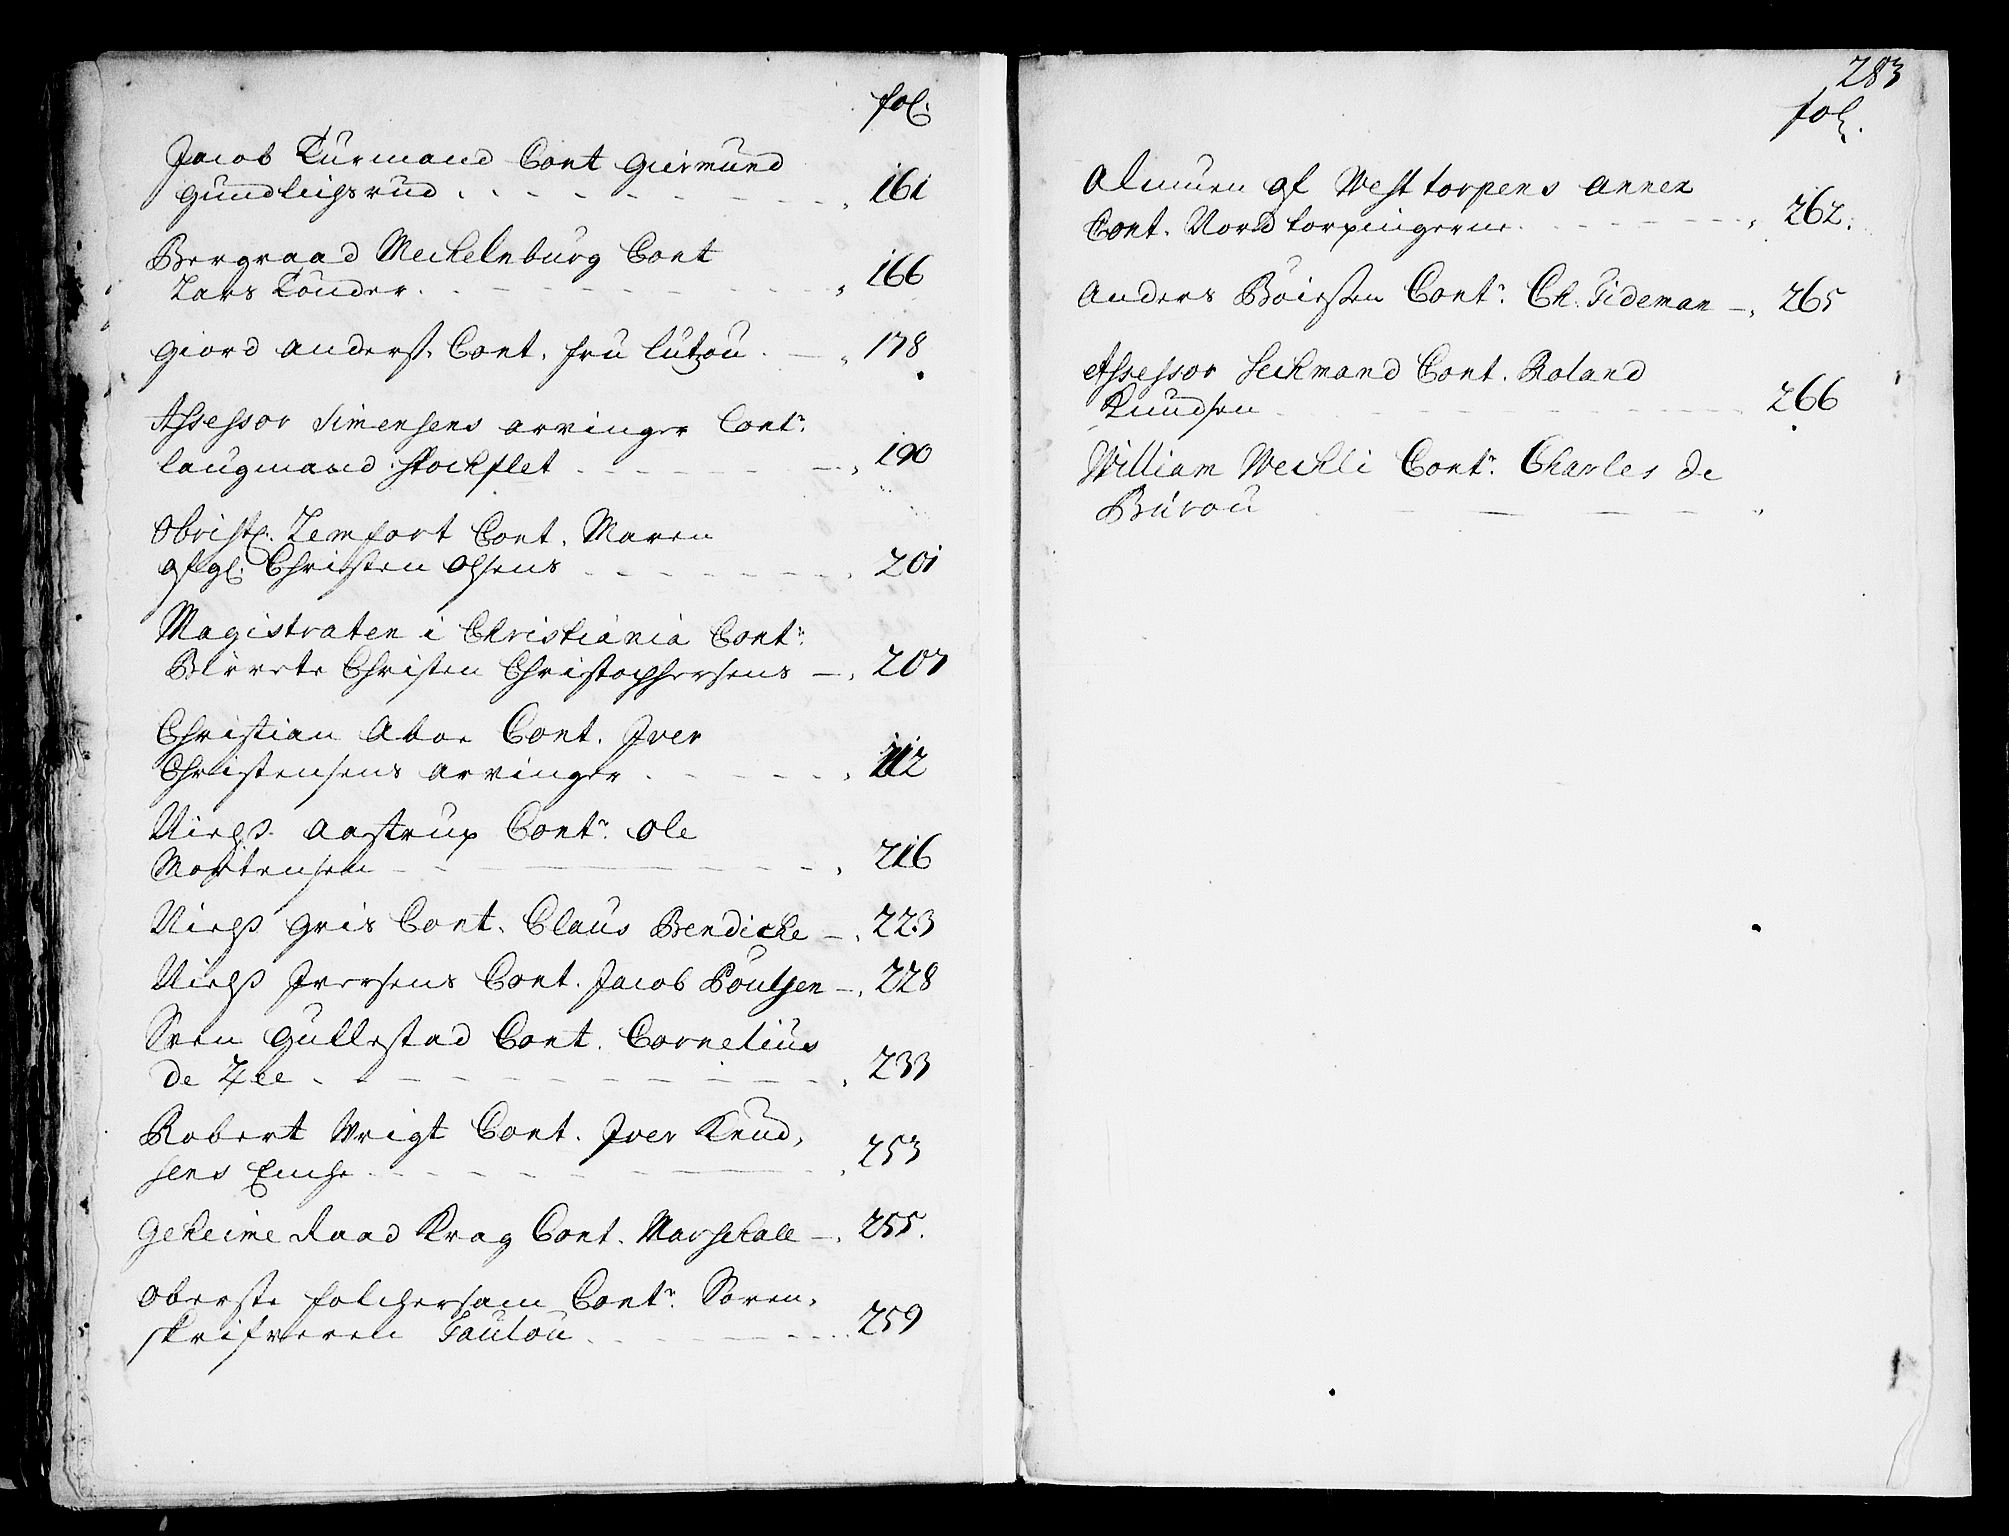 fol.
Jacob Turmand Cont Guirmund
gundleigsrud . . . 161
Bergraad Meckelnburg Cont
Lars Tønder . . . 166
Giord anderss. Cont. fru lützou . — 178
Assessor Simensens arvinger Contr.
laugmand Stockflet — 190
Obristl. Lemfort Cont. Maren
afgl. Christen Olsens 201
Magistraten i Christiania Contr.
Blivete Christen Christophersens — 207
Christian Aboe Cont. Iver
Christensens arvinger . . 212
Nielss. Aastrup Contr. Ole
Mortensen — 216
Nielss Gris Cont. Claus Bendicke — 223
Nielss Iversens Cont. Jacob Poulsen — 228
Sven Gullestad Cont. Cornelius
de Zee . — 233
Robert Wrigt Cont. Iver Knud,
sens Encke — 253
Geheime Raad Krag Cont. Marschall — 255.
Oberste folchersam Contr. Soren,
skrifveren Toulou . . 259
283
fol.
Almuen af West torpens annex
Cont. Nord torpingerne . . 262.
Anders Böiesen Contr. Ch. Tideman — 265
Assessor Seckmand Cont. Roland
Knudsen — 266
William Weckli Contr. Charles de
Burou —